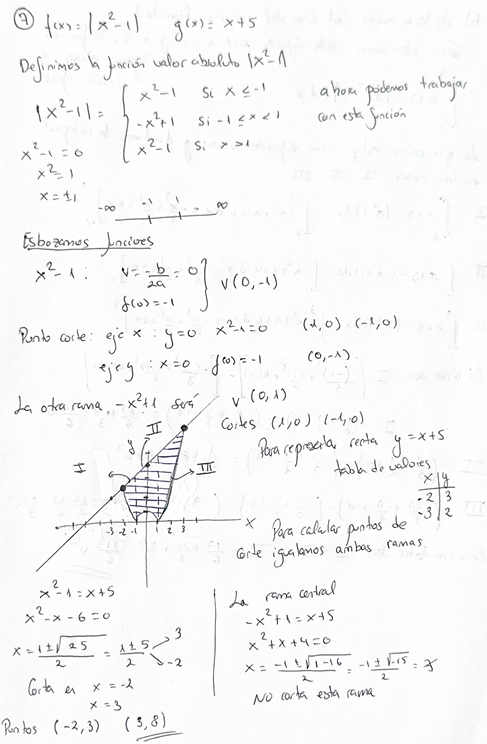 ⑦ f(x) = |x²-1|   g(x) = x+5
Definimos la función valor absoluto |x²-1|
|x²-1| = { x²-1 si x ≤ -1
-x²+1 si -1 ≤ x < 1
x²-1 si x > 1
ahora podemos trabajar
con esta función
x²-1 = 0
x² = 1
x = ±1
-∞ -1 1 ∞
Esbozamos funciones
x²-1 : V = -b/2a = 0
f(0) = -1 } V(0,-1)
Punto corte: eje x : y=0 x²-1=0 (1,0) (-1,0)
eje y : x=0 f(0)=-1 (0,-1)
La otra rama -x²+1 será V (0,1)
Cortes (1,0) (-1,0)
Para representar recta y = x+5
tabla de valores
x | y
-2 | 3
-3 | 2
I II III
y
x
-3 -2 -1 1 2 3
Para calcular puntos de
corte igualamos ambas ramas
x²-1 = x+5
x²-x-6 = 0
x = (1±√25)/2 = (1±5)/2 3
-2
Corta en x = -2
x = 3
Puntos (-2,3) (3,8)
La rama central
-x²+1 = x+5
x²+x+4 = 0
x = (-1±√(1-16))/2 = (-1±√-15)/2 = ∄
No corta esta rama